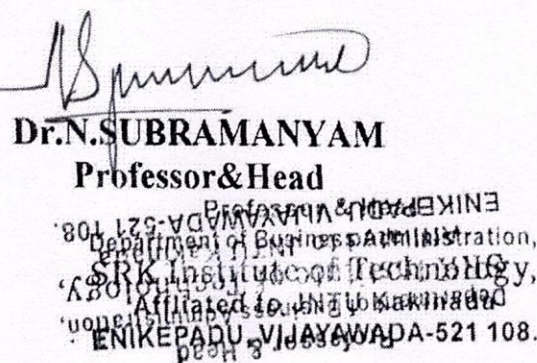 Dr.N.SUBRAMANYAM
Professor&Head
Professor & Head
Department of Business Administration,
SRK Institute of Technology,
Affiliated to JNTU Kakinada
ENIKEPADU, VIJAYAWADA-521 108.